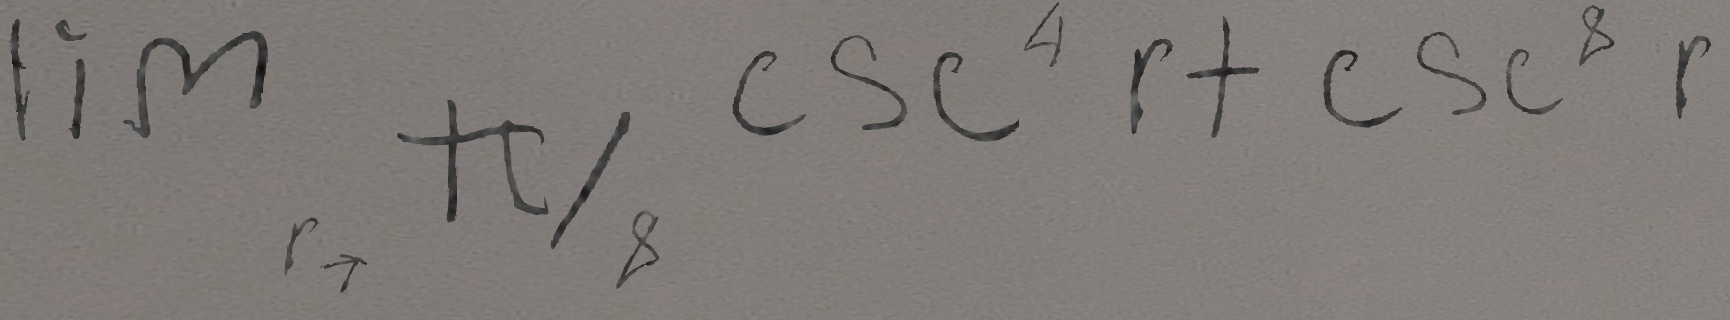 lim_{r→π/8} csc^4 r + csc^8 r